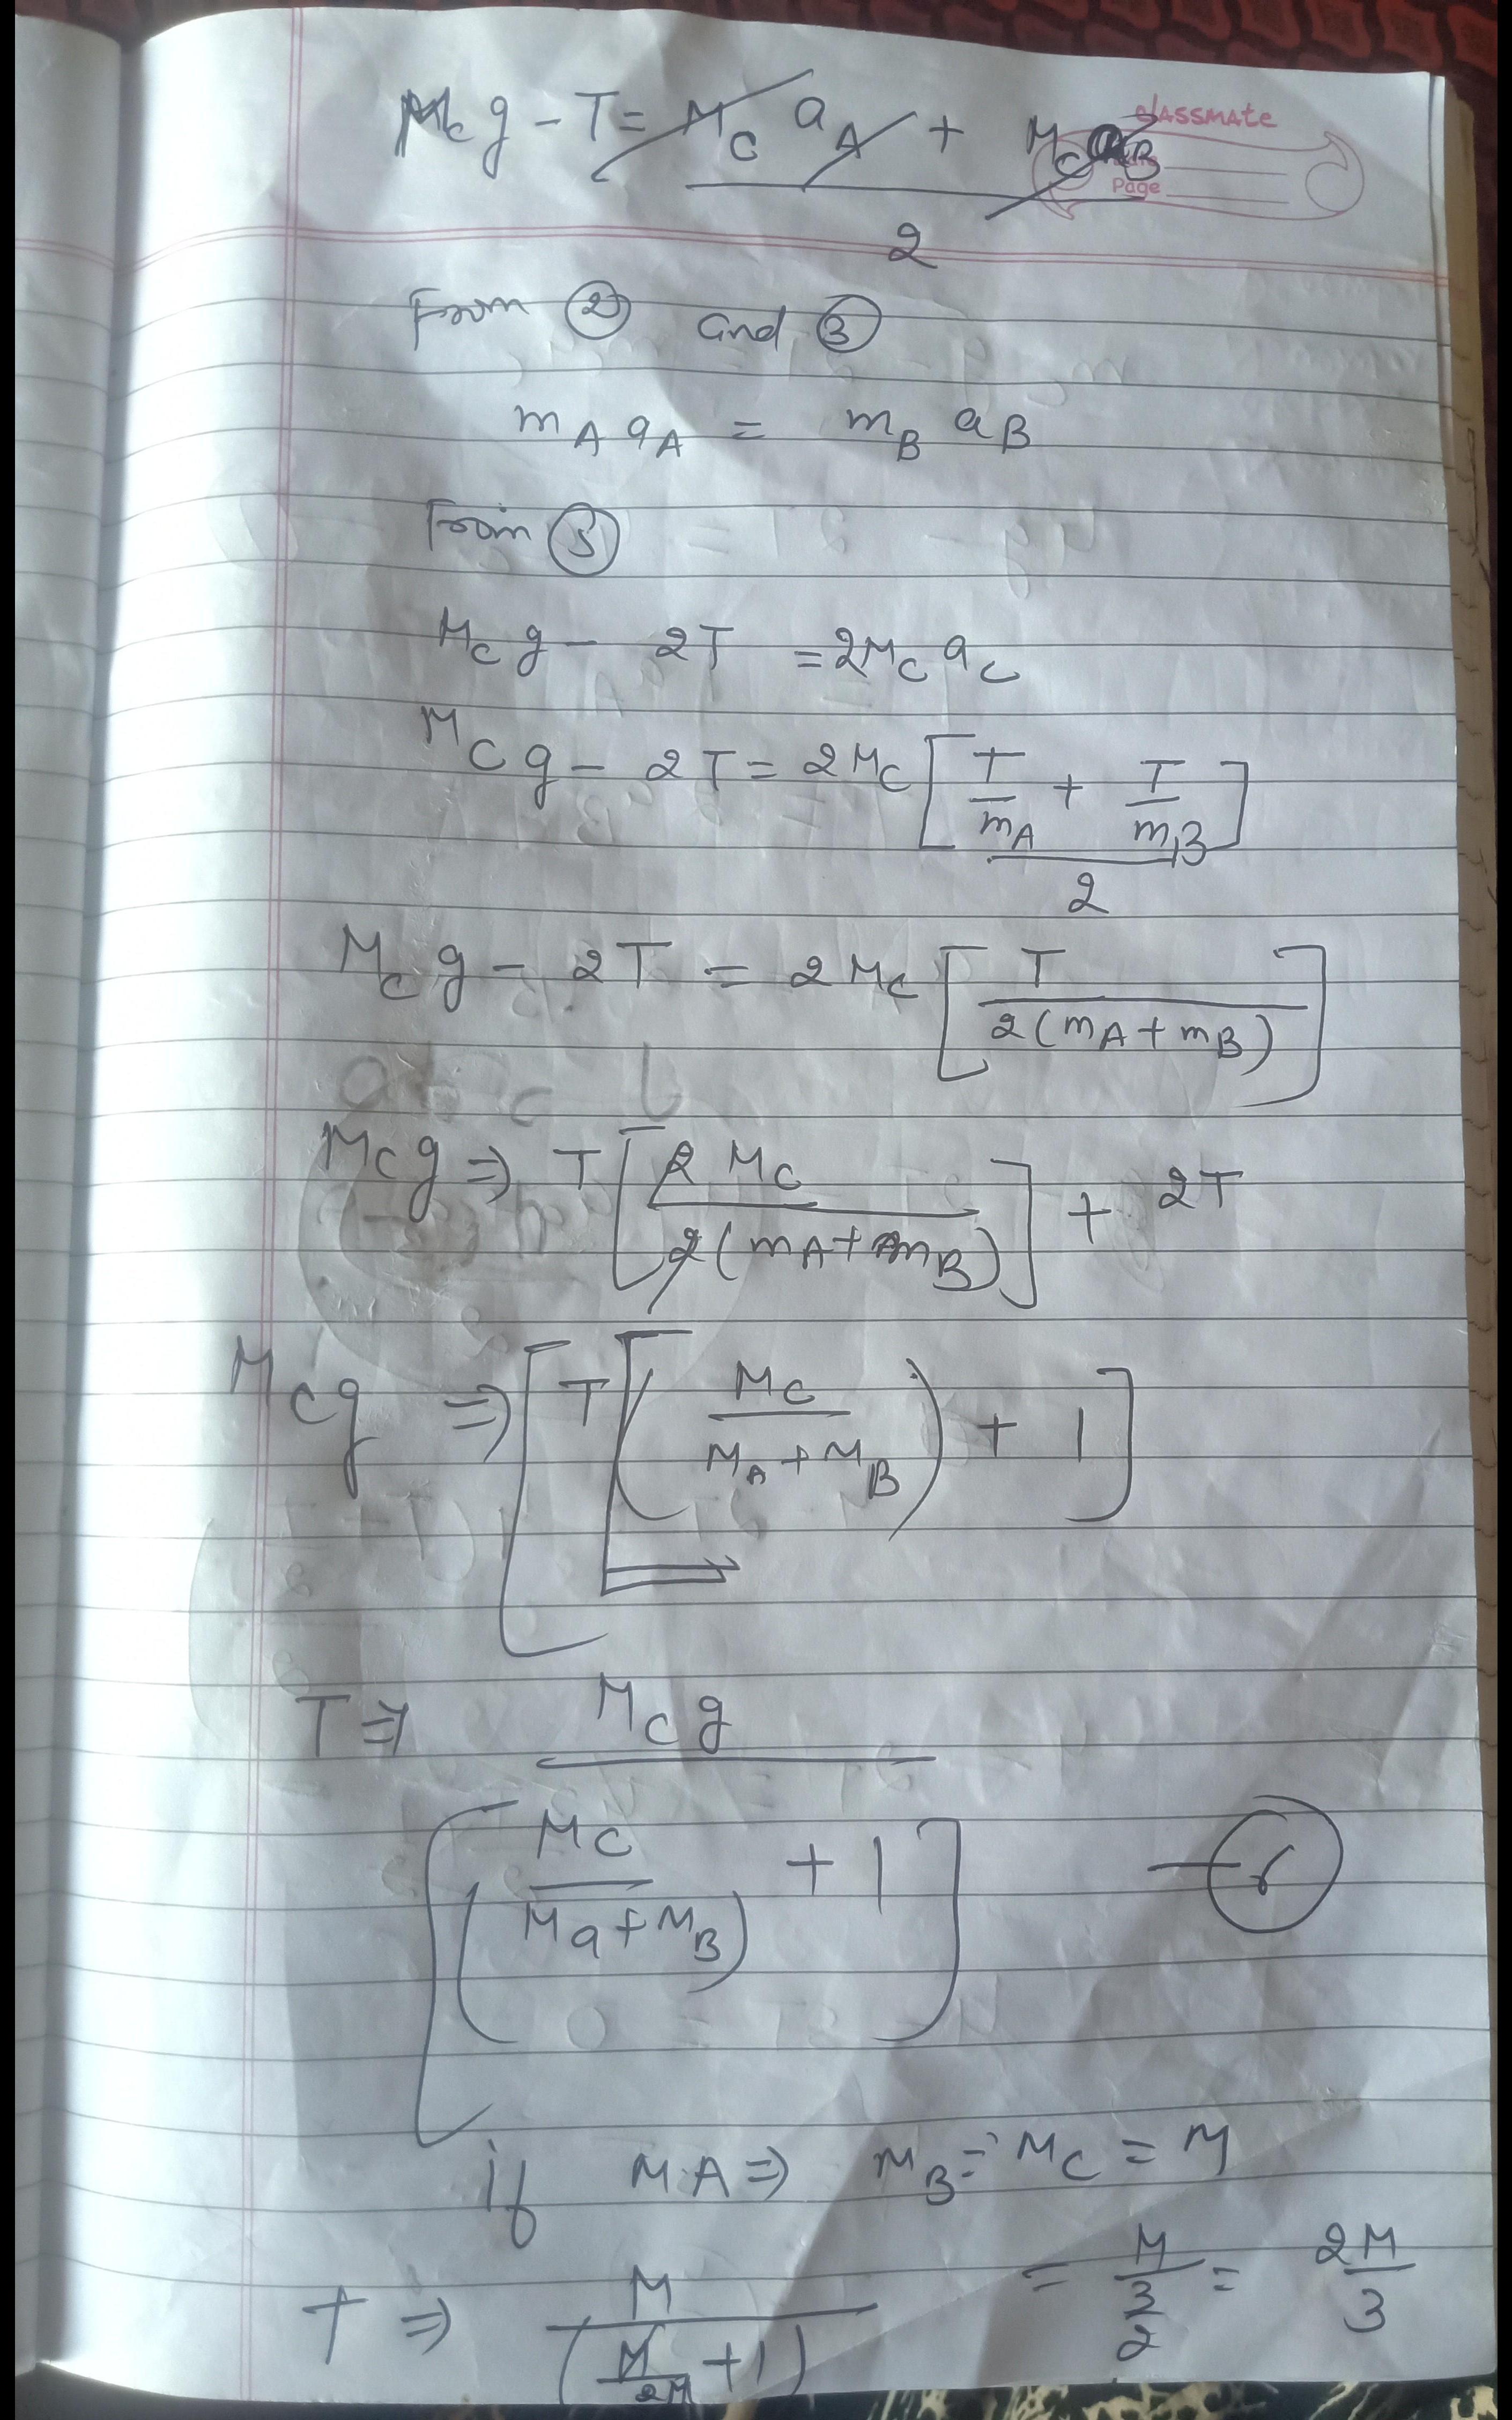 Mc g - T = Mc aA + Mc aB
classmate
Page
2
From ② and ③
mA aA = mB aB
From ⑤
Mc g - 2T = 2Mc ac
Mc g - 2T = 2Mc [T/mA + T/mB]
2
Mc g - 2T = 2Mc [T / 2(mA + mB)]
Mc g ⇒ T [2 Mc / 2(mA + mB)] + 2T
Mc g ⇒ [T [(Mc / MA + MB) + 1]
T ⇒ Mc g
[(Mc / Ma + MB) + 1] — ⑥
if MA ⇒ MB = Mc = M
T ⇒ M / (M/2M + 1) = M / 3/2 = 2M / 3